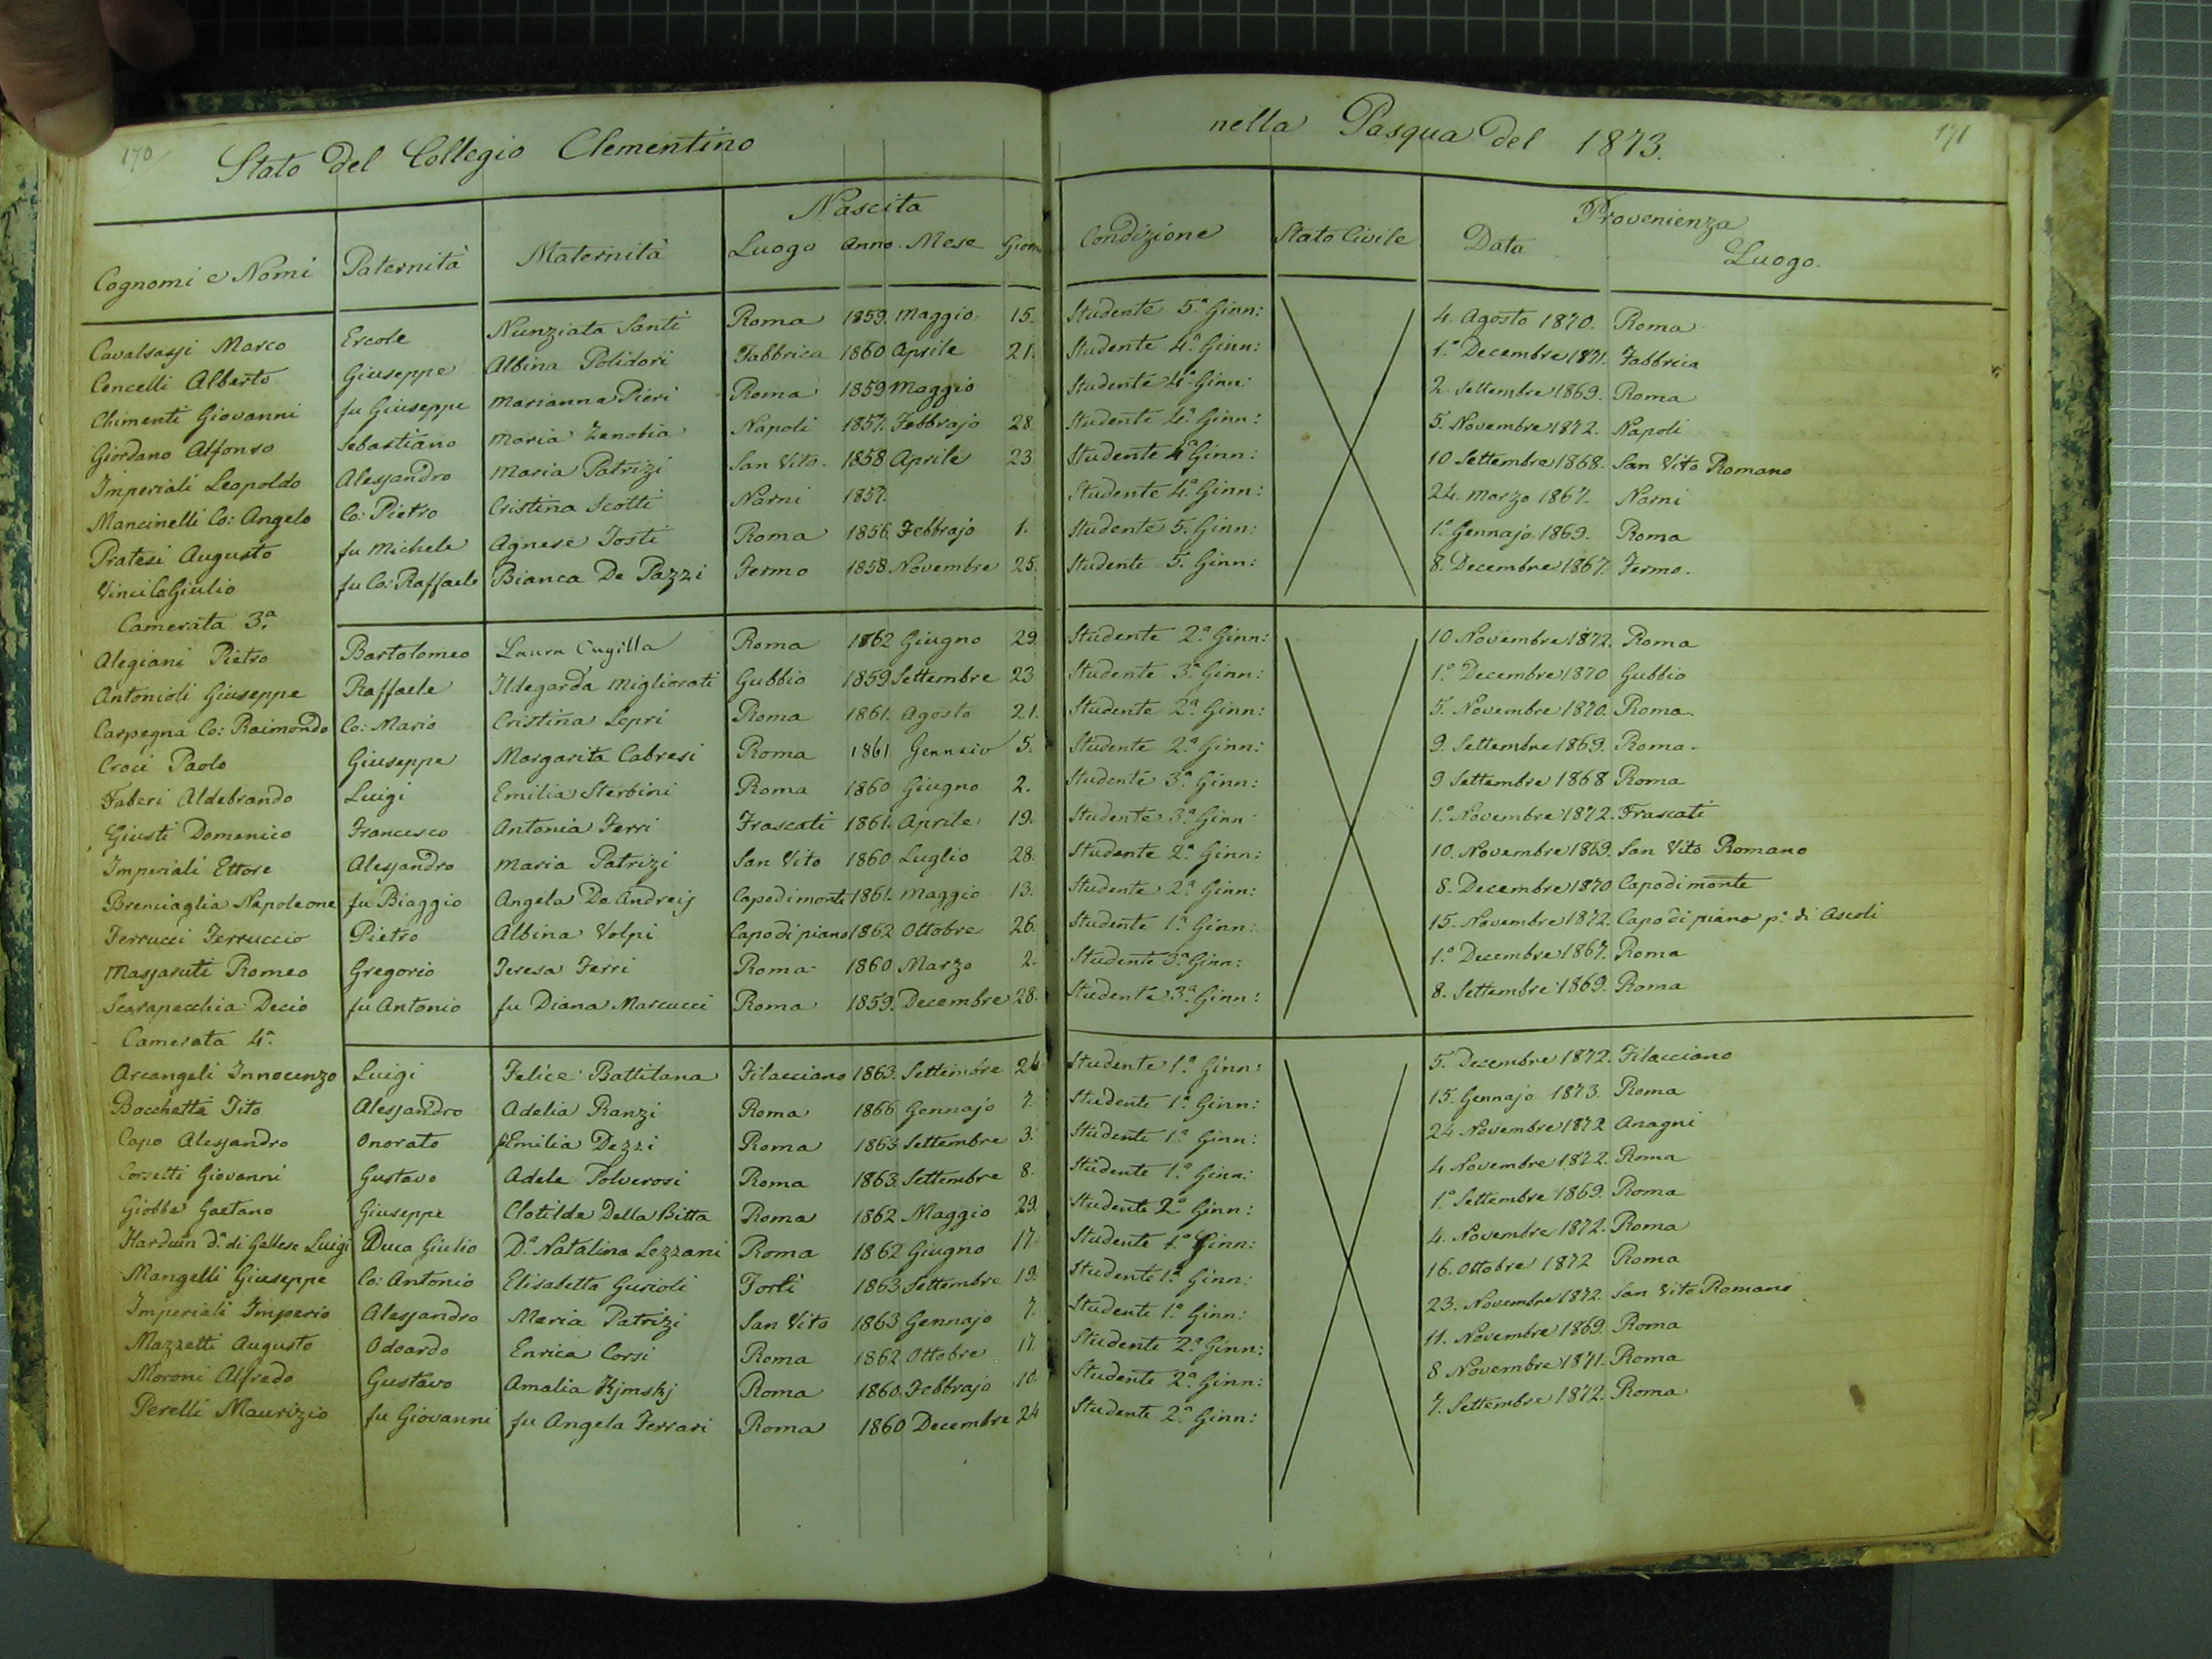 170
Stato del Collegio Clementino nella Pasqua del 1873.
171
Nascita Provenienza
Cognomi e Nomi Paternità Maternità Luogo Anno Mese Giorno Condizione Stato Civile Data Luogo.
Cavalsassi Marco Ercole Nunziata Santi Roma 1859. Maggio 15. Studente 5.a Ginn: 4. Agosto 1870. Roma
Cencelli Alberto Giuseppe Albina Polidori Fabbrica 1860 Aprile 21. Studente 4.a Ginn: 1.o Decembre 1871. Fabbrica
Chimenti Giovanni fu Giuseppe Marianna Pieri Roma 1859 Maggio Studente 4.a Ginn: 2. Settembre 1869. Roma
Giordano Alfonso Sebastiano Maria Zenobia Napoli 1857. Febbrajo 28. Studente 4.a Ginn: 5. Novembre 1872. Napoli
Imperiali Leopoldo Alessandro Maria Patrizi San Vito. 1858 Aprile 23. Studente 4.a Ginn: 10 Settembre 1868. San Vito Romano
Mancinelli Co: Angelo Co: Pietro Cristina Scotti Narni 1857. Studente 4.a Ginn: 24. Marzo 1867. Narni
Pratesi Augusto fu Michele Agnese Tosti Roma 1856. Febbrajo 1. Studente 5. Ginn: 1.o Gennajo 1869. Roma
Vinci Co: Giulio fu Co: Raffaele Bianca De Pazzi Fermo 1858 Novembre 25. Studente 5. Ginn: 8. Decembre 1867. Fermo.
Camerata 3.a
Alegiani Pietro Bartolomeo Laura Cugilla Roma 1862 Giugno 29. Studente 2.a Ginn: 10 Novembre 1872. Roma
Antonioli Giuseppe Raffaele Ildegarda Migliorati Gubbio 1859 Settembre 23 Studente 3.a Ginn: 1.o Decembre 1870 Gubbio
Carpegna Co: Raimondo Co: Mario Cristina Lepri Roma 1861. Agosto 21. Studente 2.a Ginn: 5. Novembre 1870. Roma
Croci Paolo Giuseppe Margarita Cabresi Roma 1861 Gennaio 5. Studente 2.a Ginn: 9. Settembre 1869. Roma
Faberi Aldebrando Luigi Emilia Sterbini Roma 1860 Giugno 2. Studente 3.a Ginn: 9 Settembre 1868 Roma
Giusti Domenico Francesco Antonia Ferri Frascati 1861. Aprile 19. Studente 3.a Ginn: 1.o Novembre 1872. Frascati
Imperiali Ettore Alessandro Maria Patrizi San Vito 1860 Luglio 28. Studente 2.a Ginn: 10. Novembre 1869. San Vito Romano
Brenciaglia Napoleone fu Biaggio Angela De Andreis Capodimonte 1861. Maggio 13. Studente 2.a Ginn: 8. Decembre 1870 Capodimonte
Ferrucci Ferruccio Pietro Albina Volpi Capo di piano 1862 Ottobre 26. Studente 1.a Ginn: 15. Novembre 1872. Capo di piano p. di Ascoli
Massaruti Romeo Gregorio Teresa Ferri Roma 1860 Marzo 2. Studente 3.a Ginn: 1.o Decembre 1867. Roma
Scarapecchia Decio fu Antonio fu Diana Marcucci Roma 1859. Decembre 28. Studente 3.a Ginn: 8. Settembre 1869. Roma
Camerata 4.a
Arcangeli Innocenzo Luigi Felice Battilana Filacciano 1863. Settembre Studente 1.a Ginn: 5. Decembre 1872. Filacciano
Bocchetta Tito Alessandro Adelia Ranzi Roma 1866 Gennajo 7. Studente 1.a Ginn: 15. Gennajo 1873. Roma
Capo Alessandro Onorato Emilia Dezzi Roma 1863 Settembre 3. Studente 1.a Ginn: 24 Novembre 1872 Anagni
Corsetti Giovanni Gustavo Adele Polverosi Roma 1863. Settembre 8. Studente 1.a Ginn: 4 Novembre 1872. Roma
Giobbe Gaetano Giuseppe Clotilde Della Bitta Roma 1862 Maggio 29. Studente 2.a Ginn: 1.o Settembre 1869. Roma
Harduin d. di Gallese Luigi Duca Giulio D.a Natalina Lezzani Roma 1862 Giugno 17. Studente 1.a Ginn: 4. Novembre 1872. Roma
Mangelli Giuseppe Co: Antonio Elisabetta Gurioli Forlì 1863 Settembre 19. Studente 1.a Ginn: 16. Ottobre 1872 Roma
Imperiali Imperio Alessandro Maria Patrizi San Vito 1863 Gennajo 7. Studente 1.a Ginn: 23. Novembre 1872. San Vito Romano
Mazzetti Augusto Odoardo Enrica Corsi Roma 1862 Ottobre 17. Studente 2.a Ginn: 11. Novembre 1869. Roma
Moroni Alfredo Gustavo Amalia Kjmskj Roma 1860. Febbrajo 10. Studente 2.a Ginn: 8 Novembre 1871. Roma
Perelli Maurizio fu Giovanni fu Angela Ferrari Roma 1860 Decembre 24 Studente 2.a Ginn: 7. Settembre 1872. Roma